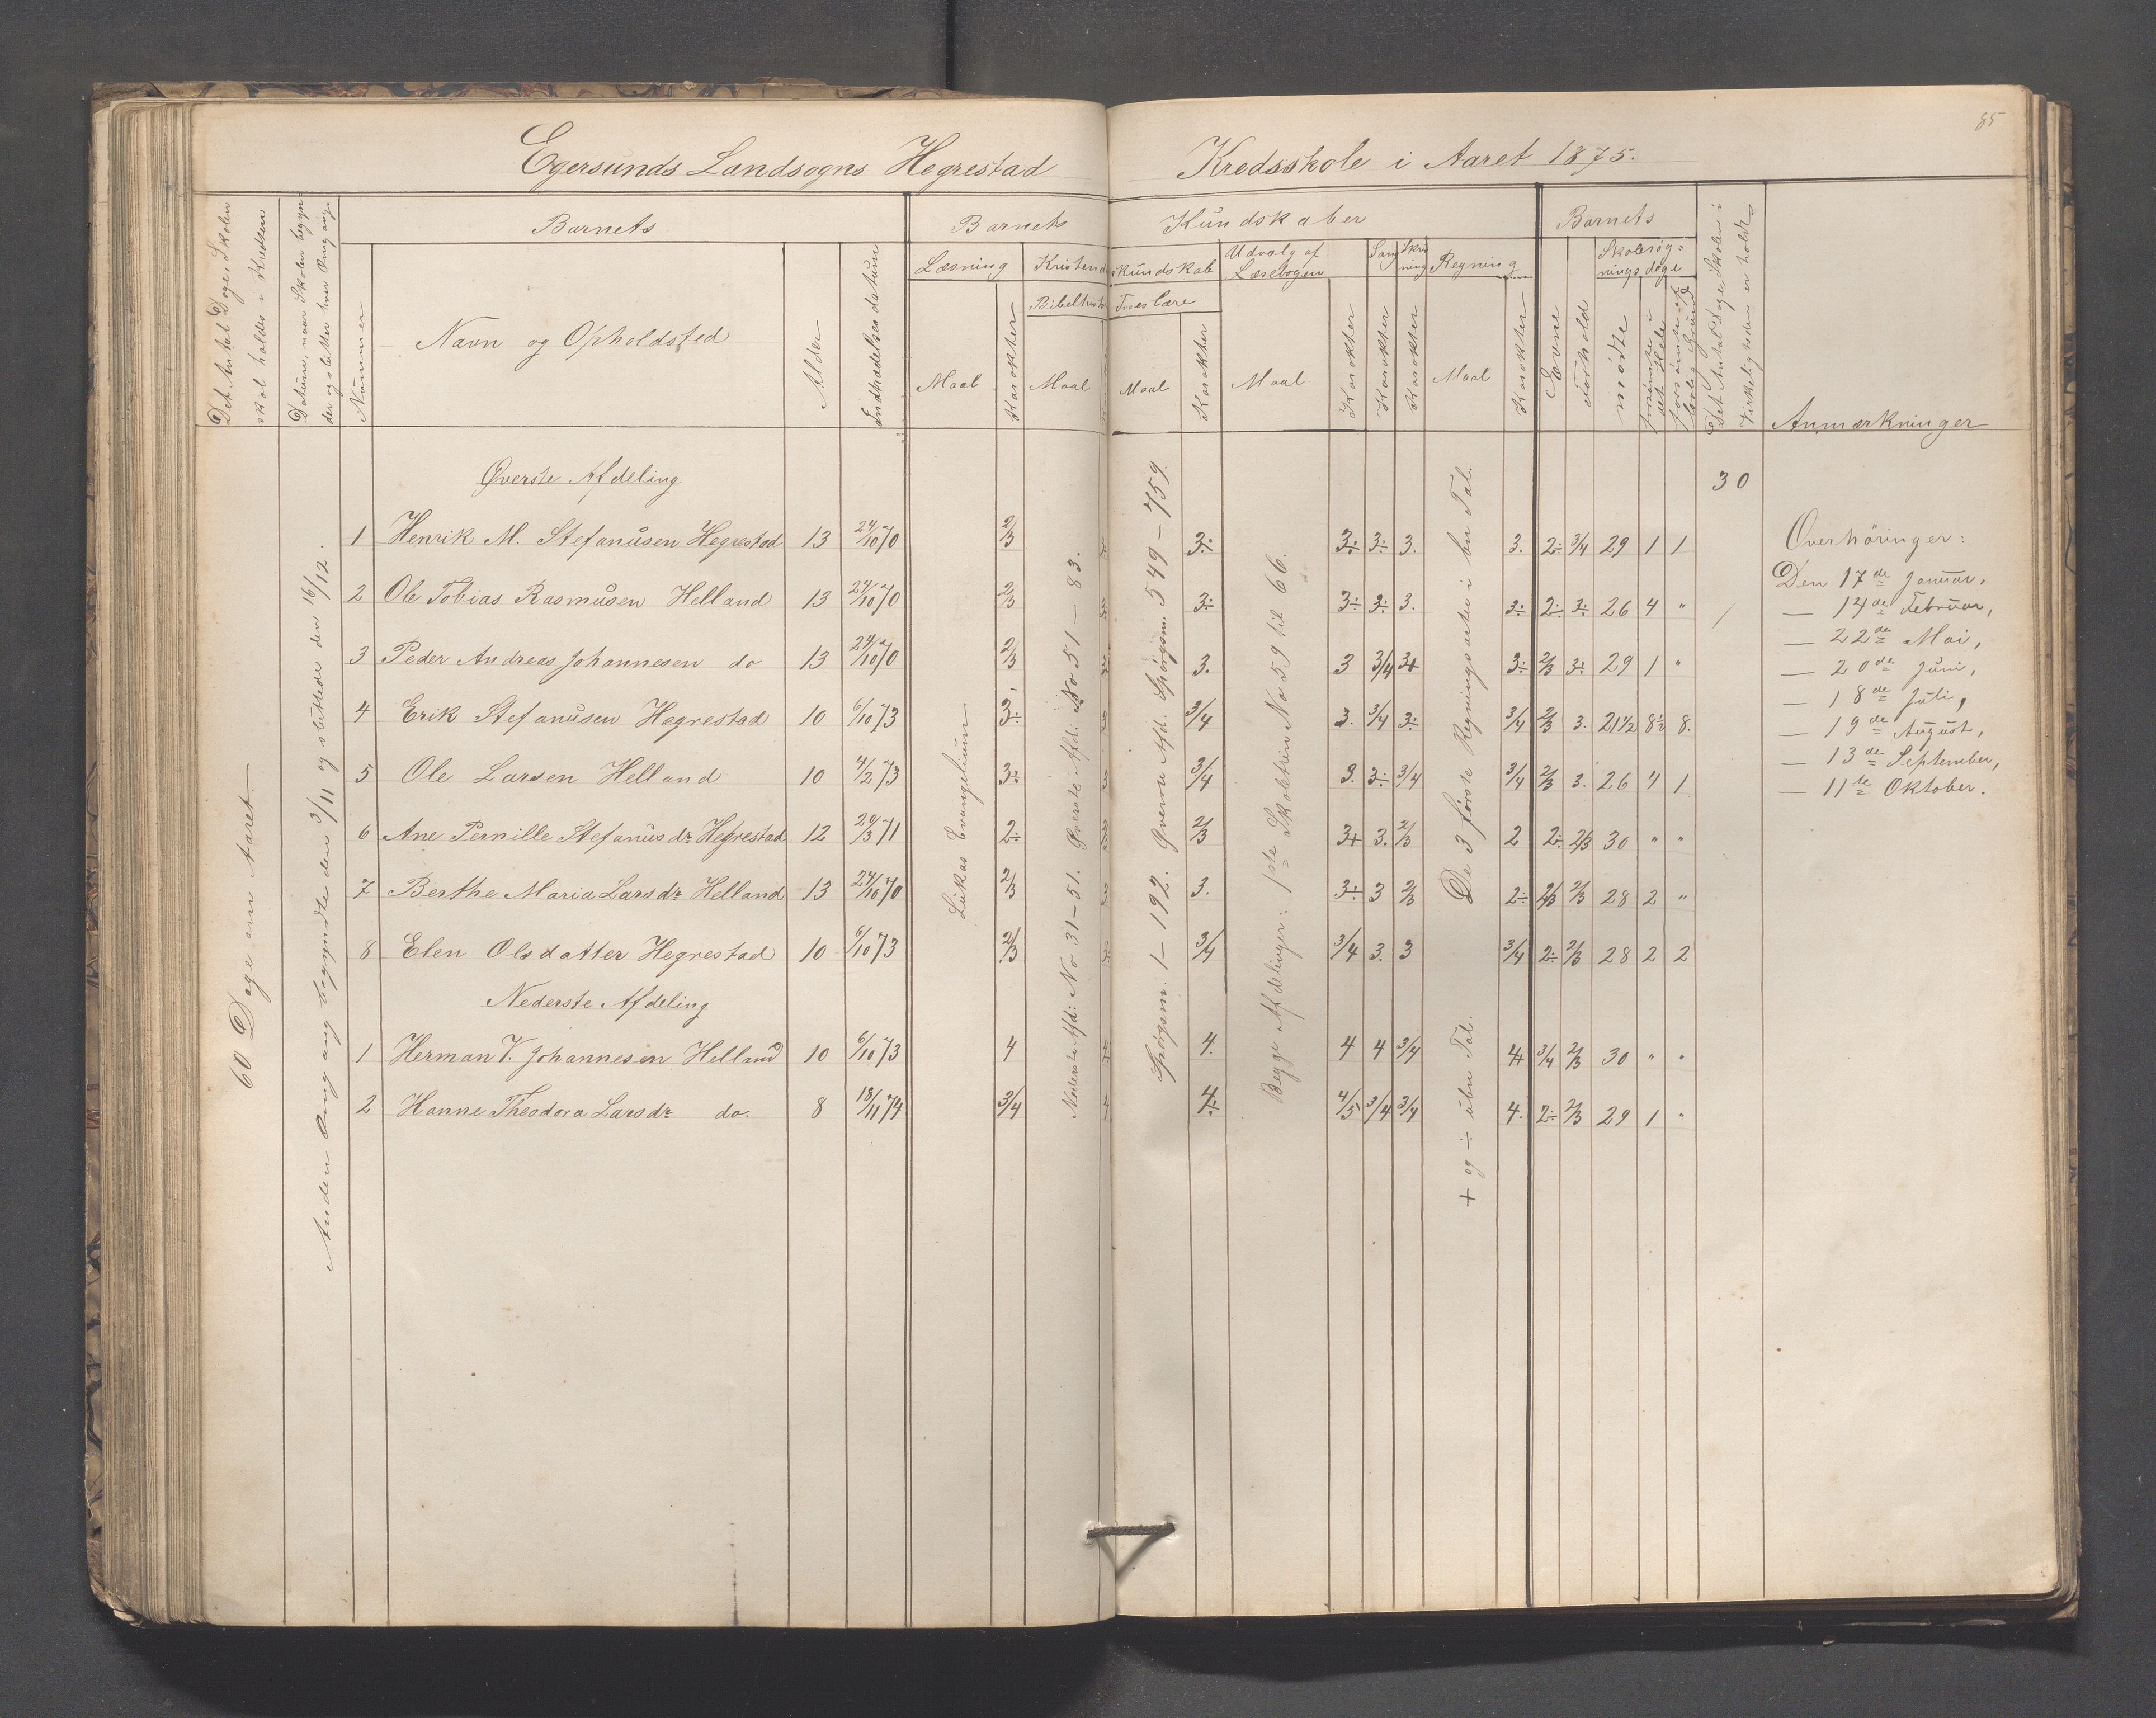 85
Egersunds Landsogns Hegrestad Kredsskole i Aaret 1875.
Det Antal Dage, Skolen skal holdes i Kredsen
Datum, naar Skolen begynder og slutter hver Omgang
Barnets
Nummer
Navn og Opholdsted
Alder
Indtrædelsesdatum
Barnets Kundskaber
Læsning
Maal
Karakter
Kristendomskundskab
Bibelhistorie
Maal
Troeslære
Maal
Karakter
Udvalg af Læsebogen
Maal
Karakter
Sang
Karakter
Skrivning
Karakter
Regning
Maal
Karakter
Barnets
Evne
Forhold
Skolesøgningsdage
mødte
forsømte i det Hele
forsømte af lovlig Grund
Det Antal Dage, Skolen i Virkeligheden er holdt
Anmærkninger
60 Dage om Aaret
Anden Omgang begyndte den 3/11 og sluttede den 16/12.
Lukas Evangelium
Nederste Afd: No 31-51. Øverste Afd: No 51-83.
Spørgsm. 1-192. Øverste Afd. Spørgsm. 549-759.
Begge Afdelinger: 1ste Skoletrin No 59 til 66.
+ og ÷ ubn Tal. De 3 første Regningsarter i bn Tal.
Øverste Afdeling
30
1 Henrik M. Stefanusen Hegrestad 13 24/10 70 2/3 3÷ 3÷ 3÷ 3. 3. 2÷ 3/4 29 1 1
2 Ole Tobias Rasmusen Helland 13 24/10 70 2/3 3÷ 3÷ 3÷ 3. 3÷ 2÷ 3÷ 26 4 "
3 Peder Andreas Johannesen do 13 24/10 70 2/3 3. 3 3/4 3+ 3÷ 2/3 3÷ 29 1 "
4 Erik Stefanusen Hegrestad 10 6/10 73 3÷ 3/4 3. 3/4 3÷ 3/4 2/3 3. 21 1/2 8 1/2 8.
5 Ole Larsen Helland 10 4/2 73 3÷ 3/4 3. 3÷ 3/4 3/4 2/3 3. 26 4 1
6 Ane Pernille Stefanusdr Hegrestad 12 29/3 71 2÷ 2/3 3+ 3. 2/3 2 2÷ 2/3 30 " "
7 Berthe Maria Larsdr Helland 13 24/10 70 2/3 3. 3÷ 3 2/3 2÷ 2/3 2/3 28 2 "
8 Elen Olsdatter Hegrestad 10 6/10 73 2/3 3/4 3/4 3. 3 3/4 2÷ 2/3 28 2 2
Nederste Afdeling
1 Herman V. Johannesen Helland 10 6/10 73 4 4. 4 4 3/4 4+ 3/4 2/3 30 " "
2 Hanne Theodora Larsdr do. 8 18/11 74 3/4 4÷ 4/5 3/4 3/4 4. 2÷ 2/3 29 1 "
Overhøringer:
Den 17de Januar,
— 14de Februar,
— 22de Mai,
— 20de Juni,
— 18de Juli,
— 19de August,
— 13de September,
— 11te Oktober.